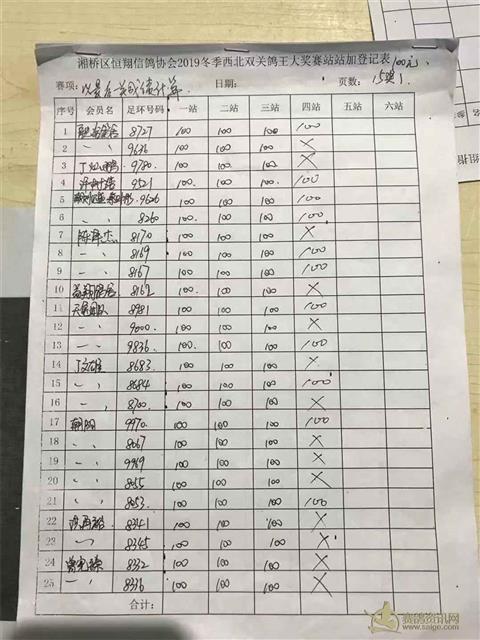 湘桥区恒翔信鸽协会2019冬季西北双关鸽王大奖赛站站加登记表 100元
赛项: 以最后关成绩计算 日期: 页数: 15奖
序号 会员名 足环号码 一站 二站 三站 四站 五站 六站
1 8727 100 100 100 100
2 〃 9636 100 100 100 ×
3 9780 100 100 100 ×
4 9521 100 100 100 100
5 9626 100 100 100 100
6 〃 8260 100 100 100 100
7 8170 100 100 100 ×
8 〃 8169 100 100 100 100
9 〃 8167 100 100 100 100
10 8162 100 100 100 ×
11 8981 100 100 100 100
12 〃 9000 100 100 100 ×
13 〃 9836 100 100 100 100
14 丁文雄 8683 100 100 100 ×
15 〃 8684 100 100 100 100
16 〃 8700 100 100 100 ×
17 朝阳 9970 100 100 100 100
18 〃 8067 100 100 100 ×
19 〃 9969 100 100 100 ×
20 〃 8055 100 100 100 ×
21 〃 8053 100 100 100 100
22 8341 100 100 100 ×
23 〃 8345 100 100 100 ×
24 8332 100 100 100 ×
25 〃 8336 100 100 100 ×
合计:
赛鸽资讯网
www.saige.com